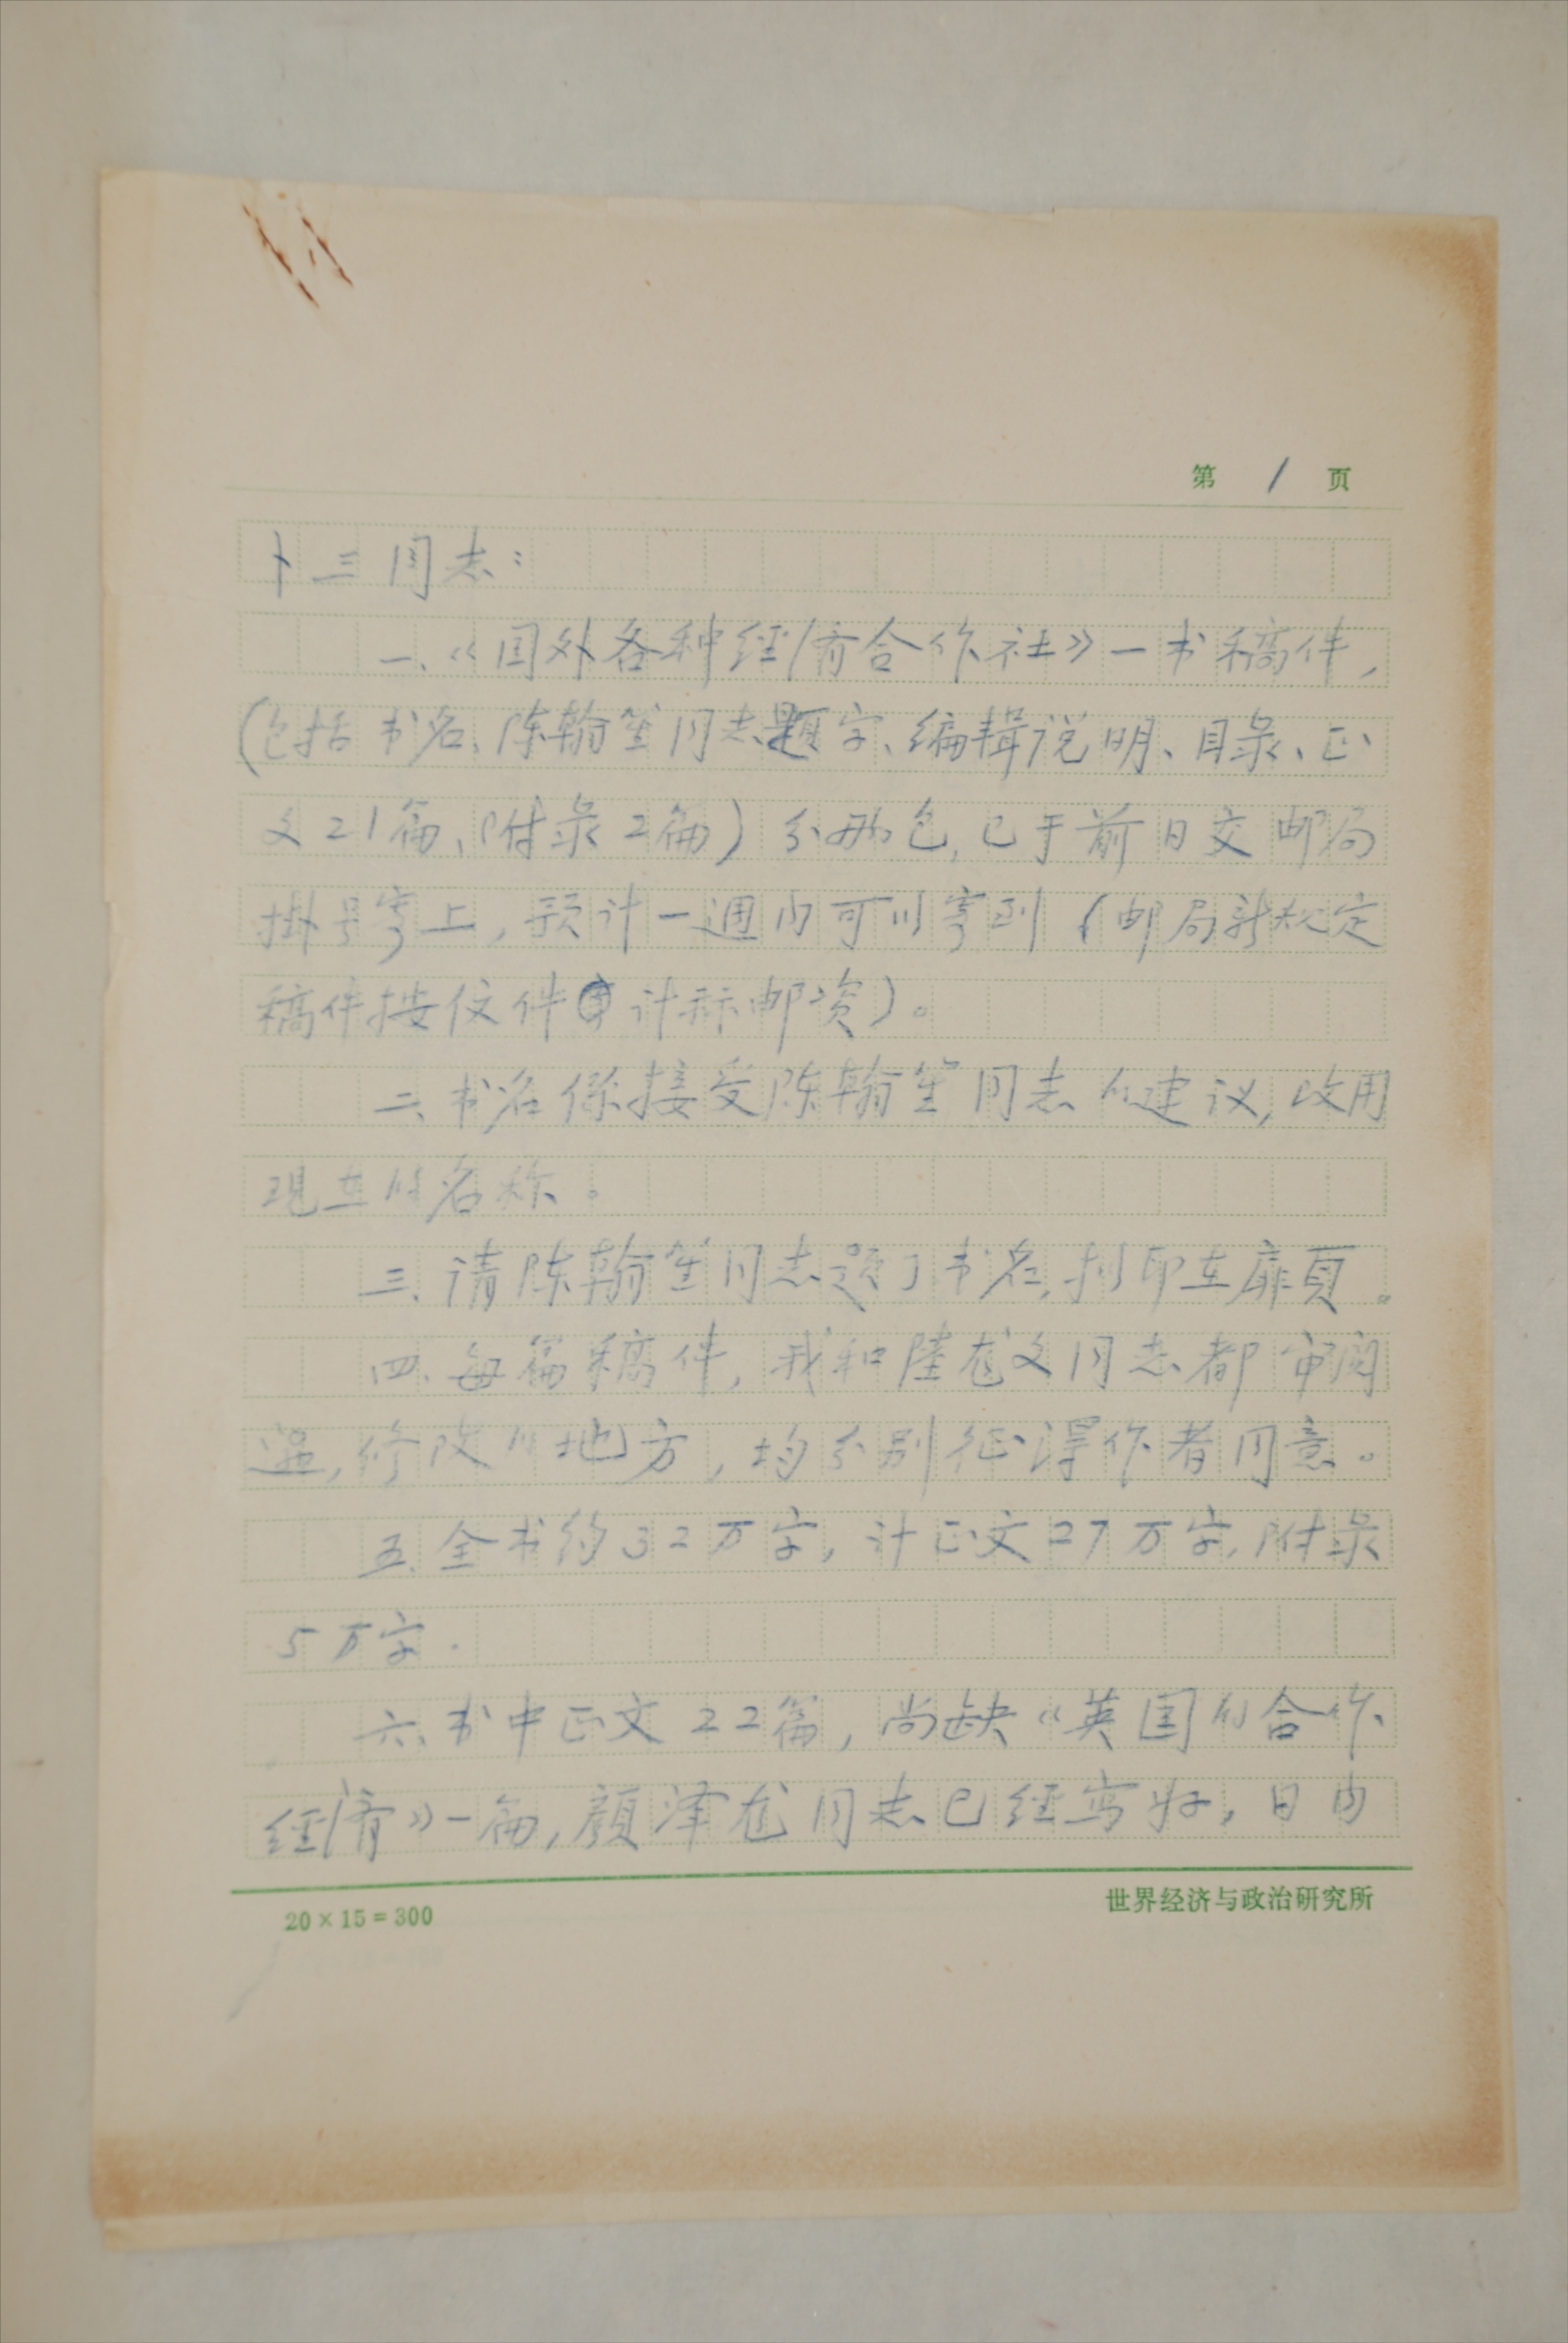 第 1 页
卜三同志：
一、《国外各种经济合作社》一书稿件，
（包括书名、陈翰笙同志题字、编辑说明、目录、正
文21篇、附录2篇）分两包，已于前日交邮局
掛号寄上，预计一週内可以寄到（邮局新规定
稿件按信件计称邮资）。
二、书名係接受陈翰笙同志的建议，改用
现在的名称。
三、请陈翰笙同志题了书名，扪印在扉頁。
四、每篇稿件，我和陆龙文同志都审阅
过，修改的地方，均分别征得作者同意。
五、全书约32万字，计正文27万字，附录
5万字．
六、书中正文22篇，尚缺《英国的合作
经济》一篇，颜泽龙同志已经写好，日内
20×15=300
世界经济与政治研究所